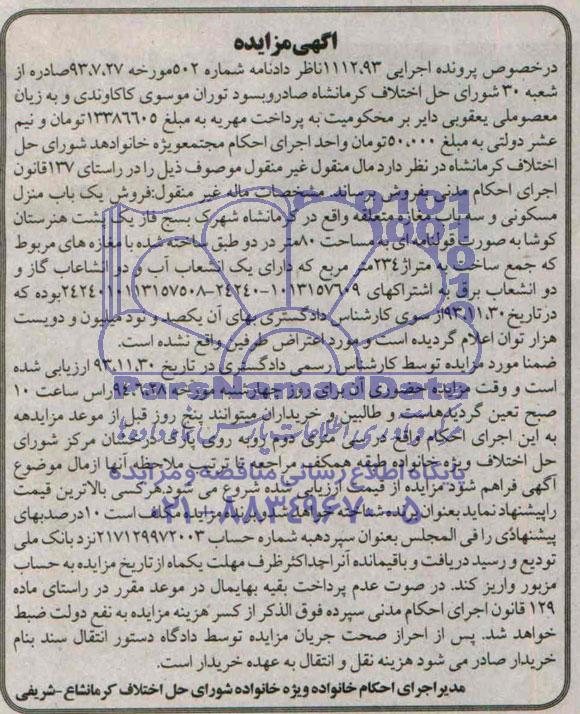 آگهی مزایده
درخصوص پرونده اجرایی ۱۱۱۲،۹۳ناظر دادنامه شماره ۵۰۲مورخه ۹۳،۷،۲۷صادره از
شعبه ۳۰ شورای حل اختلاف کرمانشاه صادروبسود توران موسوی کاکاوندی و به زیان
معصوملی یعقوبی دایر بر محکومیت به پرداخت مهریه به مبلغ ۱۳۳۸۶۶۰۵تومان و نیم
عشر دولتی به مبلغ ۵۰،۰۰۰تومان واحد اجرای احکام مجتمعویژه خانوادهد شورای حل
اختلاف کرمانشاه در نظر دارد مال منقول غیر منقول موصوف ذیل را در راستای ۱۳۷قانون
اجرای احکام مدنی بفروش برساند. مشخصات ماله غیر منقول:فروش یک باب منزل
مسکونی و سه باب مغازه متعلقه واقع در کرمانشاه شهرک بسیج فاز یک پشت هنرستان
کوشا به صورت قولنامه ای به مساحت ۸۰متر در دو طبق ساخته شده با مغازه های مربوط
که جمع ساخت به متراژ ۲۳۴متر مربع که دارای یک انشعاب آب و دو انشاعاب گاز و
دو انشعاب برق به اشتراکهای ۱۰۱۳۱۵۷۶۰۹-۲۴۲۴۰-۲۴۲۴۰۱۰۱۱۳۱۵۷۵۰۸بوده که
درتاریخ ۹۳،۱۱،۳۰از سوی کارشناس دادگستری بهای آن یکصد و نود میلیون و دویست
هزار توان اعلام گردیده است و مورد اعتراض طرفین واقع نشده است.
ضمنا مورد مزایده توسط کارشناس رسمی دادگستری در تاریخ ۹۳،۱۱،۳۰ ارزیابی شده
است و وقت مزایده حضوری آن برای روز چهارشنبه مورخه ۹۴،۳،۲۸راس ساعت ۱۰
صبح تعین گردیدهاست و طالبین و خریداران میتوانند پنج روز قبل از موعد مزایدهه
به این اجرای احکام واقع در سی متری دوم روبه روی پارک درختان مرکز شورای
حل اختلاف ویژه خانواده طبقه همکف مراجعه تا ترتیب ملاحظه آنها ازمال موضوع
آگهی فراهم شود مزایده از قیمت ارزیابی شده شروع می شود.هرکسی بالاترین قیمت
راپیشنهاد نماید بعنوان برنده شناخته خواهد شد وبرنده مزایده مکلف است ۱۰درصدبهای
پیشنهادی را فی المجلس بعنوان سپردهبه شماره حساب ۲۱۷۱۲۹۹۷۲۰۰۳نزد بانک ملی
تودیع و رسید دریافت و باقیمانده آنراحداکثر ظرف مهلت یکماه از تاریخ مزایده به حساب
مزبور واریز کند. در صورت عدم پرداخت بقیه بهایمال در موعد مقرر در راستای ماده
۱۲۹ قانون اجرای احکام مدنی سپرده فوق الذکر از کسر هزینه مزایده به نفع دولت ضبط
خواهد شد. پس از احراز صحت جریان مزایده توسط دادگاه دستور انتقال سند بنام
خریدار صادر می شود هزینه نقل و انتقال به عهده خریدار است.
مدیر اجرای احکام خانواده ویژه خانواده شورای حل اختلاف کرمانشاع-شریفی
ParsNamadData
پایگاه اطلاع رسانی مناقصه و مزایده
۰۲۱-۸۸۳۴۹۶۷۰-۵